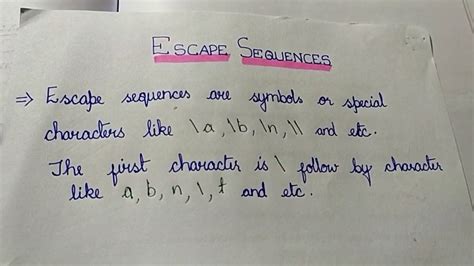 ESCAPE SEQUENCES
⇒ Escape sequences are symbols or special
characters like \a, \b, \n, \\ and etc.
The first character is \ follow by character
like a, b, n, \, t and etc.